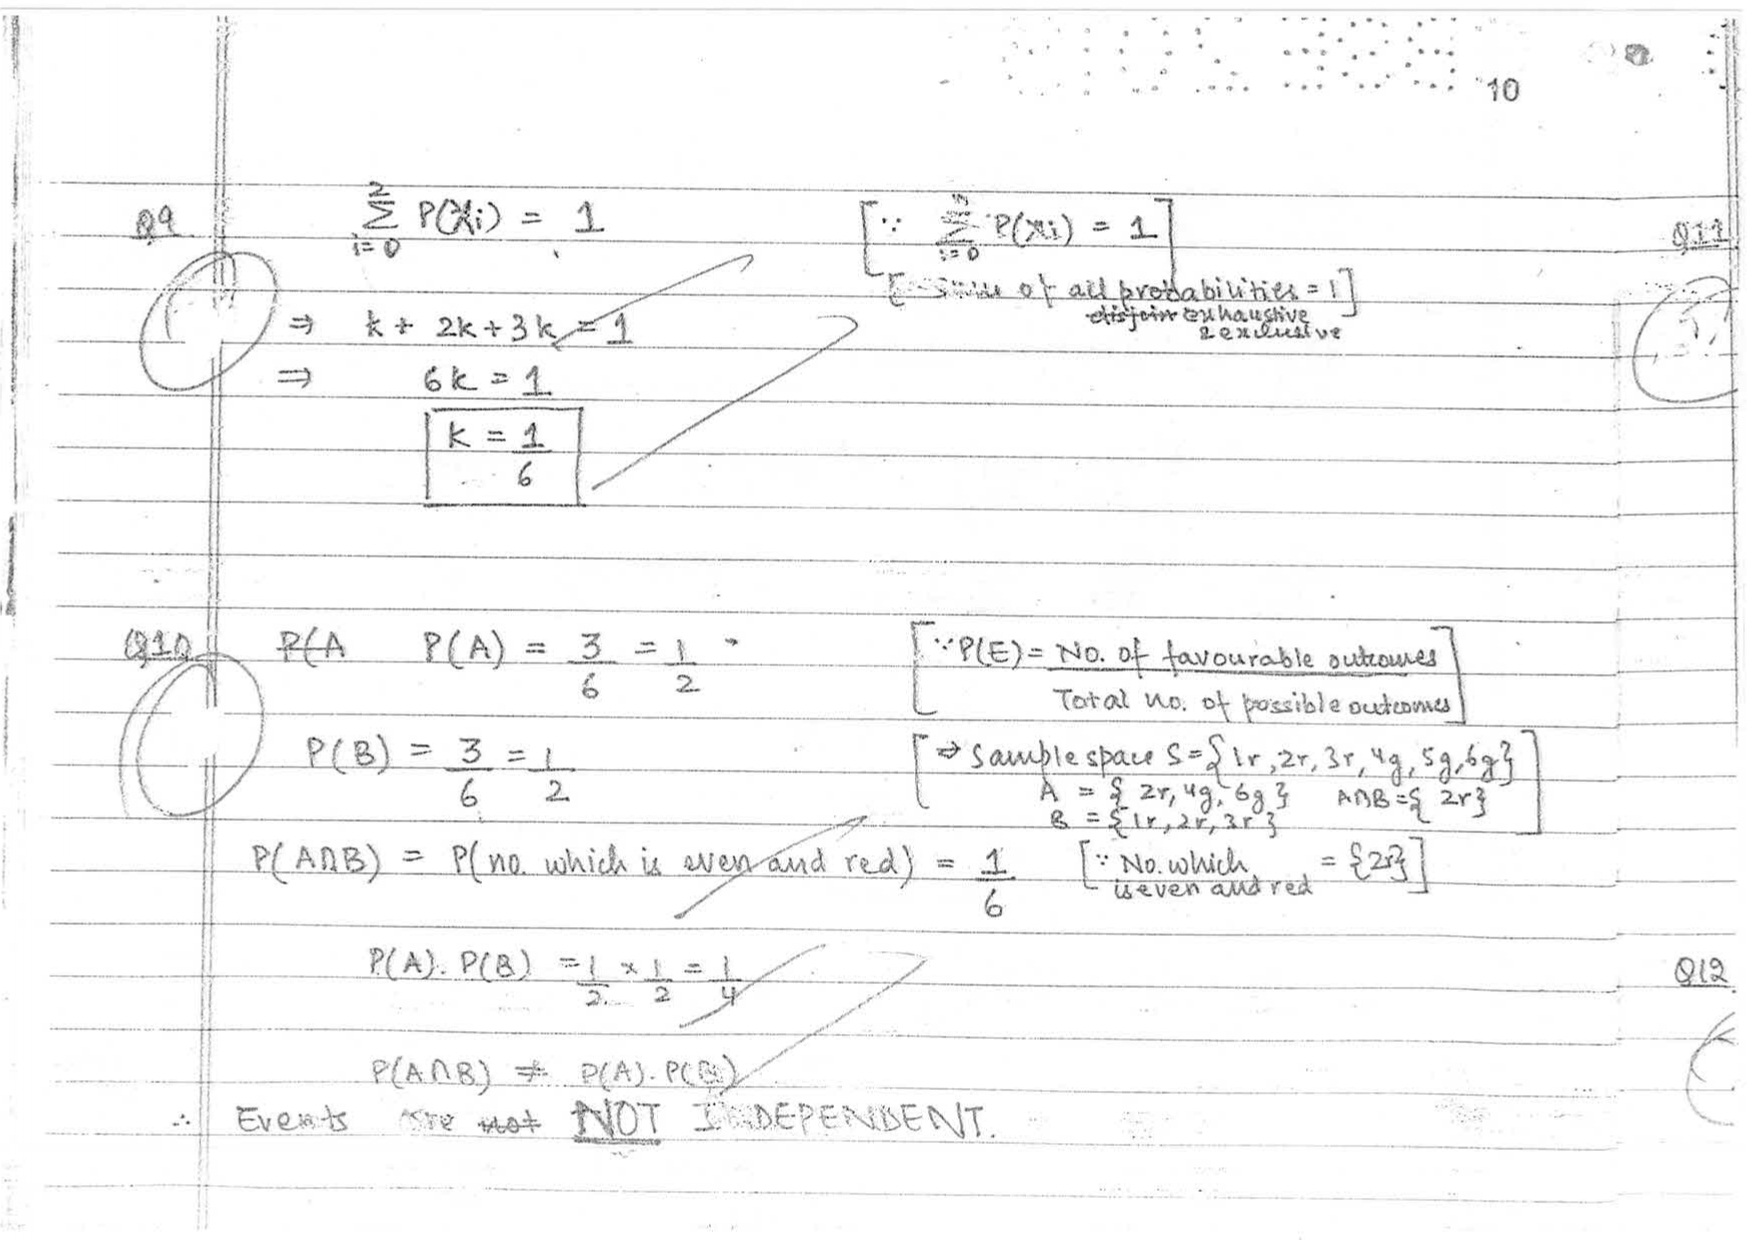 10
Q9 2∑i=0 P(Xi) = 1 [∵ ∑i=0 P(xi) = 1]
[ of all probabilities = 1]
disjoin exhaustive
& exclusive
⇒ k + 2k + 3k = 1
⇒ 6k = 1
k = 1/6
Q10 P(A P(A) = 3/6 = 1/2 [∵ P(E) = No. of favourable outcomes / Total no. of possible outcomes]
P(B) = 3/6 = 1/2 [⇒ Sample space S = {1r, 2r, 3r, 4g, 5g, 6g}
A = {2r, 4g, 6g} A∩B = {2r}
B = {1r, 2r, 3r}]
P(A∩B) = P(no. which is even and red) = 1/6 [∵ No. which is even and red = {2r}]
P(A). P(B) = 1/2 × 1/2 = 1/4
P(A∩B) ≠ P(A). P(B)
∴ Events are not NOT INDEPENDENT.
Q11
Q12